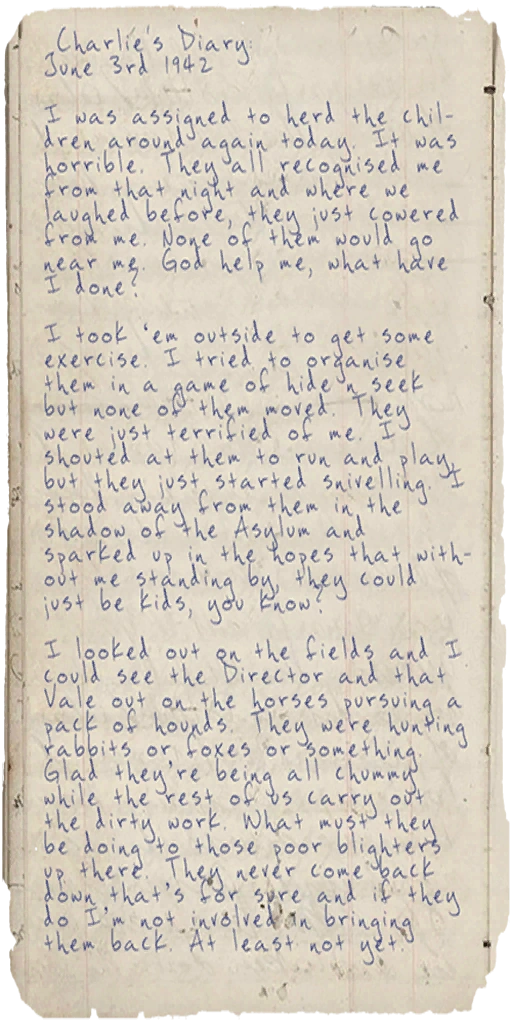 Charlie's Diary:
June 3rd 1942
I was assigned to herd the chil-
dren around again today. It was
horrible. They all recognised me
from that night and where we
laughed before, they just cowered
from me. None of them would go
near me. God help me, what have
I done?
I took 'em outside to get some
exercise. I tried to organise
them in a game of hide 'n seek
but none of them moved. They
were just terrified of me. I
shouted at them to run and play,
but they just started snivelling. I
stood away from them in the
shadow of the Asylum and
sparked up in the hopes that with-
out me standing by, they could
just be kids, you know?
I looked out on the fields and I
could see the Director and that
Vale out on the horses pursuing a
pack of hounds. They were hunting
rabbits or foxes or something.
Glad they're being all chummy
while the rest of us carry out
the dirty work. What must they
be doing to those poor blighters
up there. They never come back
down that's for sure and if they
do I'm not involved in bringing
them back. At least not yet.